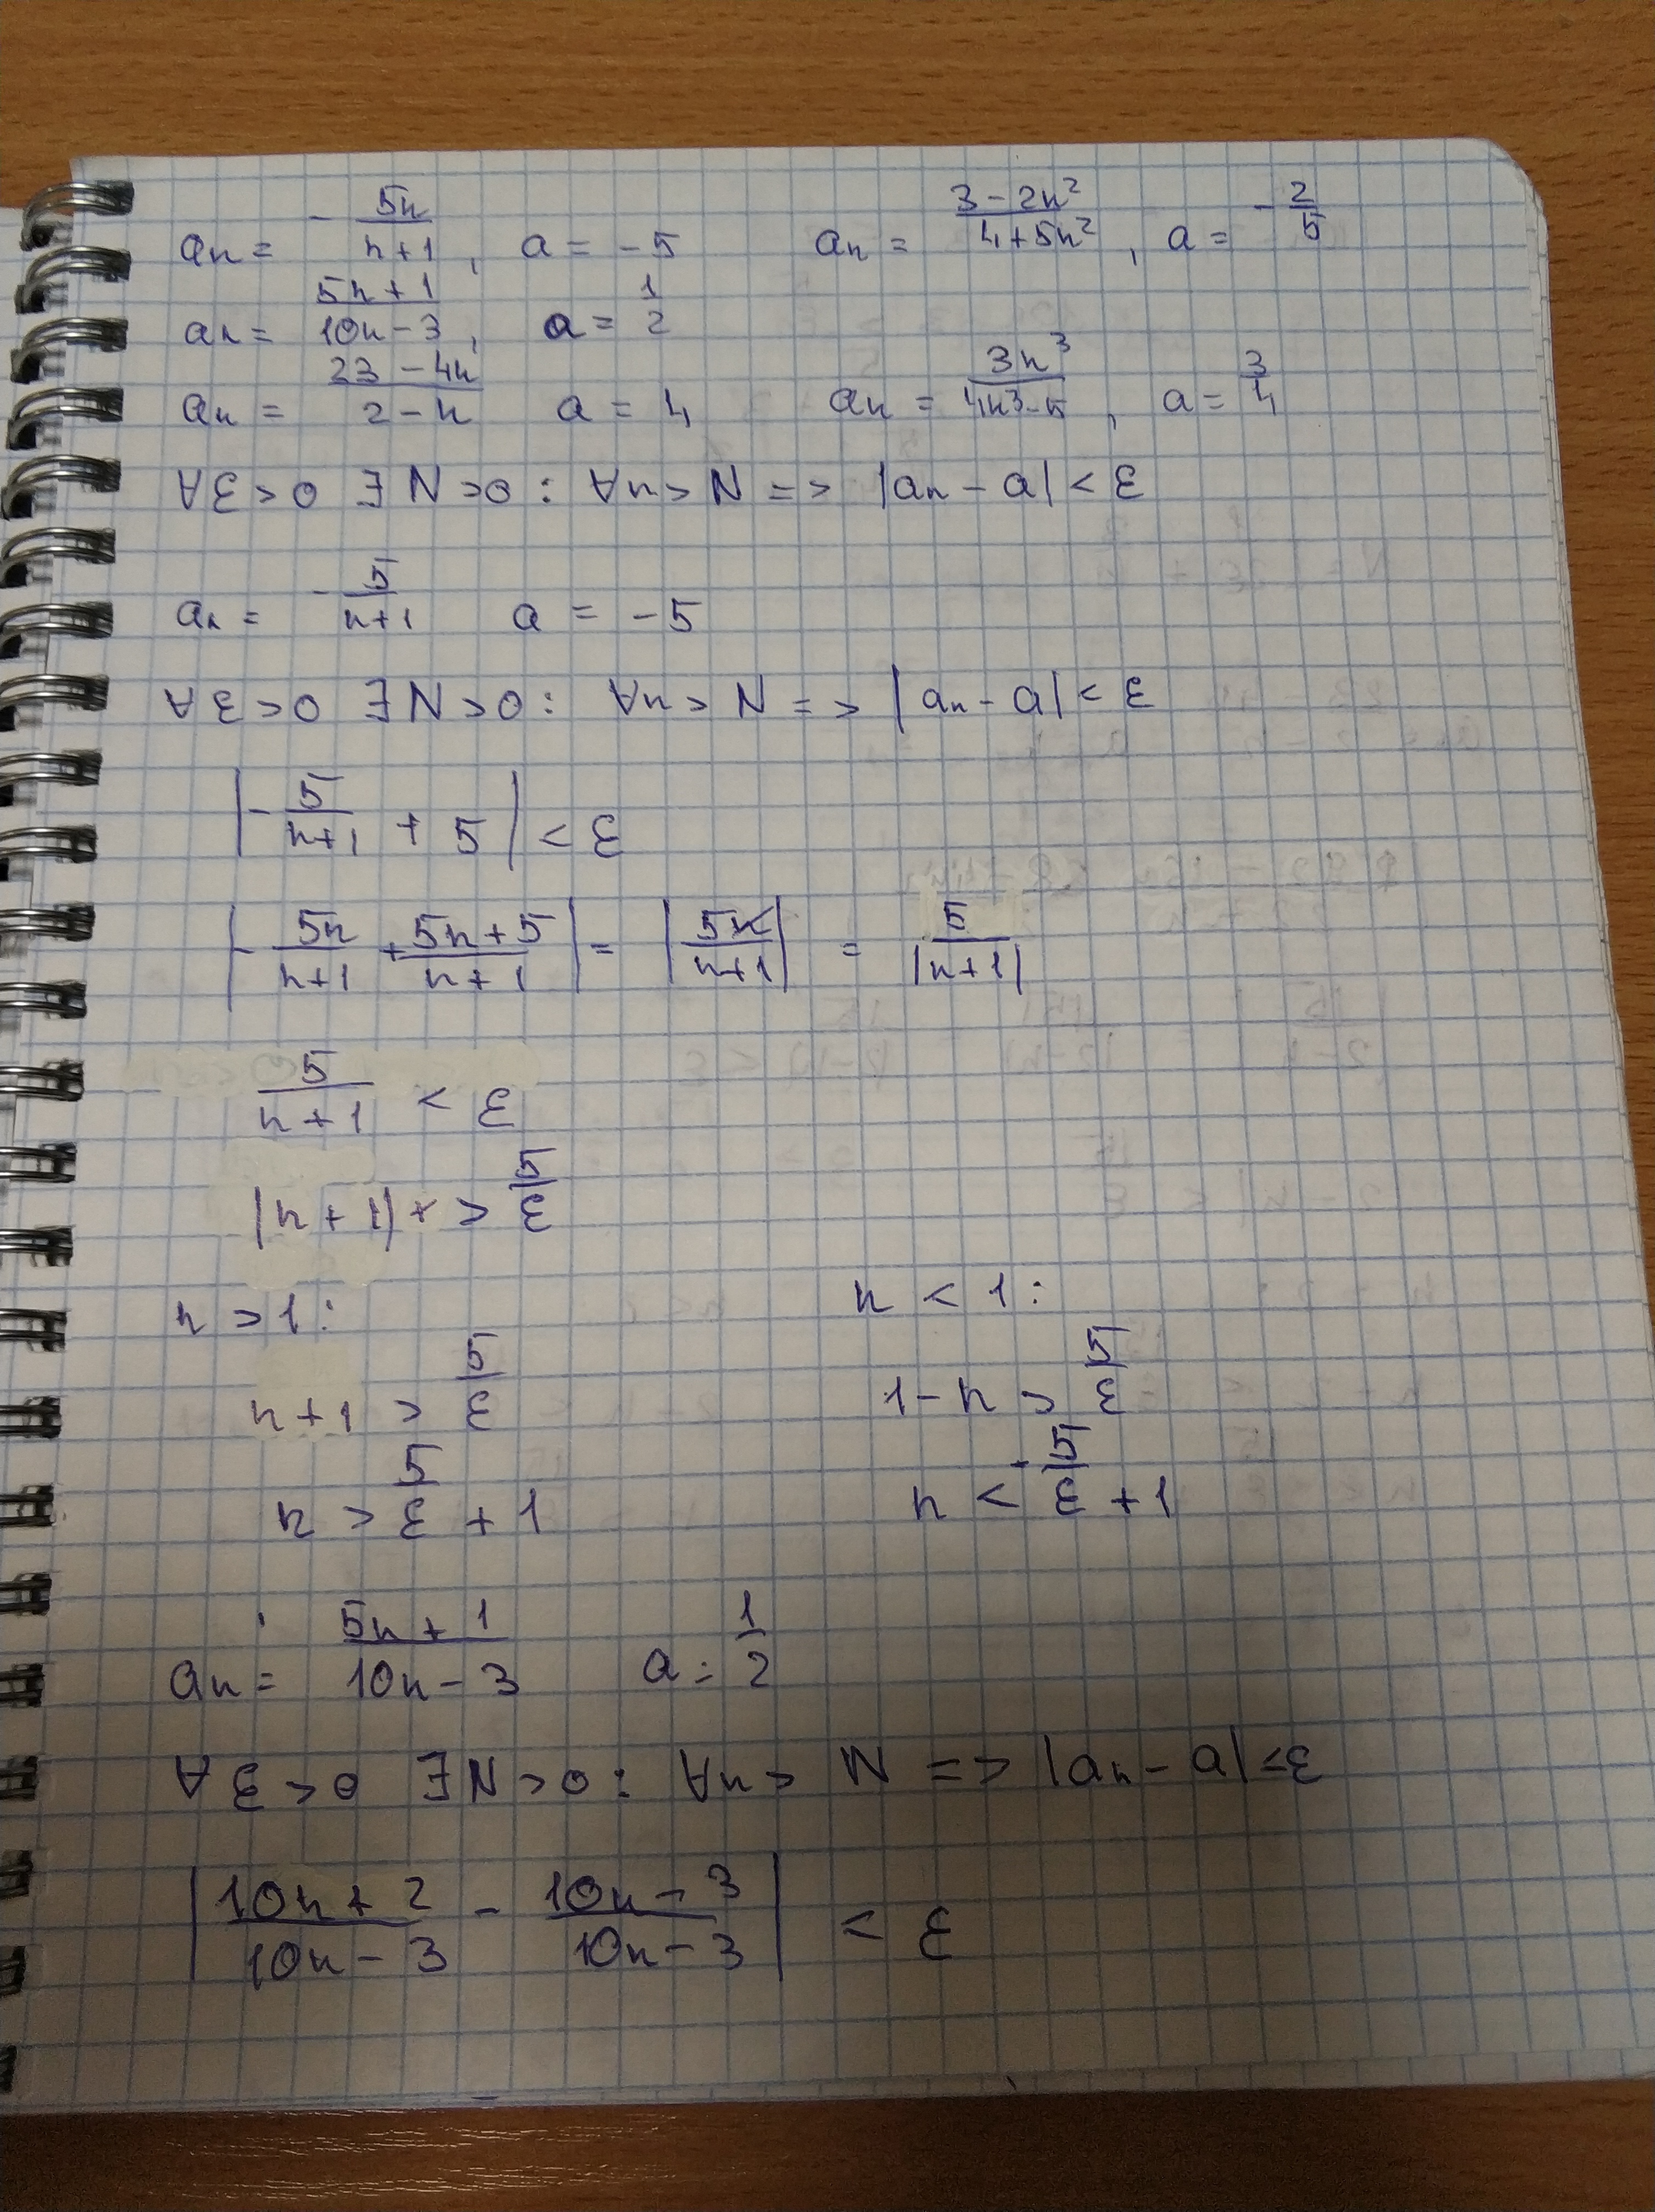 aₙ = - 5n/(n+1), a = -5    aₙ = (3-2n²)/(4+5n²), a = - 2/5
aₙ = (5n+1)/(10n-3), a = 1/2
aₙ = (23-4n)/(2-n)  a = 4    aₙ = 3n³/(4n³-5), a = 3/4
∀ 3 < 0 ∃ N > 0 : ∀n > N => |aₙ - a| < ε
aₙ = - 5/(n+1)  a = -5
∀ 3 > 0 ∃ N > 0 : ∀n > N => |aₙ - a| < ε
|- 5/(n+1) + 5| < ε
|- 5n/(n+1) + (5n+5)/(n+1)| = |5n/(n+1)| = 5/|n+1|
5/(n+1) < ε
|n+1| + > 5/ε
n > 1 :    n < 1 :
n+1 > 5/ε    1-n > 5/ε
n > 5/ε + 1    n < - 5/ε + 1
aₙ = (5n+1)/(10n-3)  a = 1/2
∀ 3 > 0 ∃ N > 0 : ∀n > N => |aₙ - a| < ε
|(10n+2)/(10n-3) - (10n-3)/(10n-3)| < ε